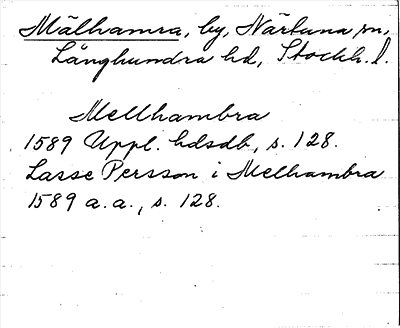 Mälhamra, by, Närtuna sn,
Långhundra hd, Stockh. l.
Mellhambra
1589 Uppl. hdsdb, s. 128.
Lasse Persson i Melhambra
1589 a. a., s. 128.